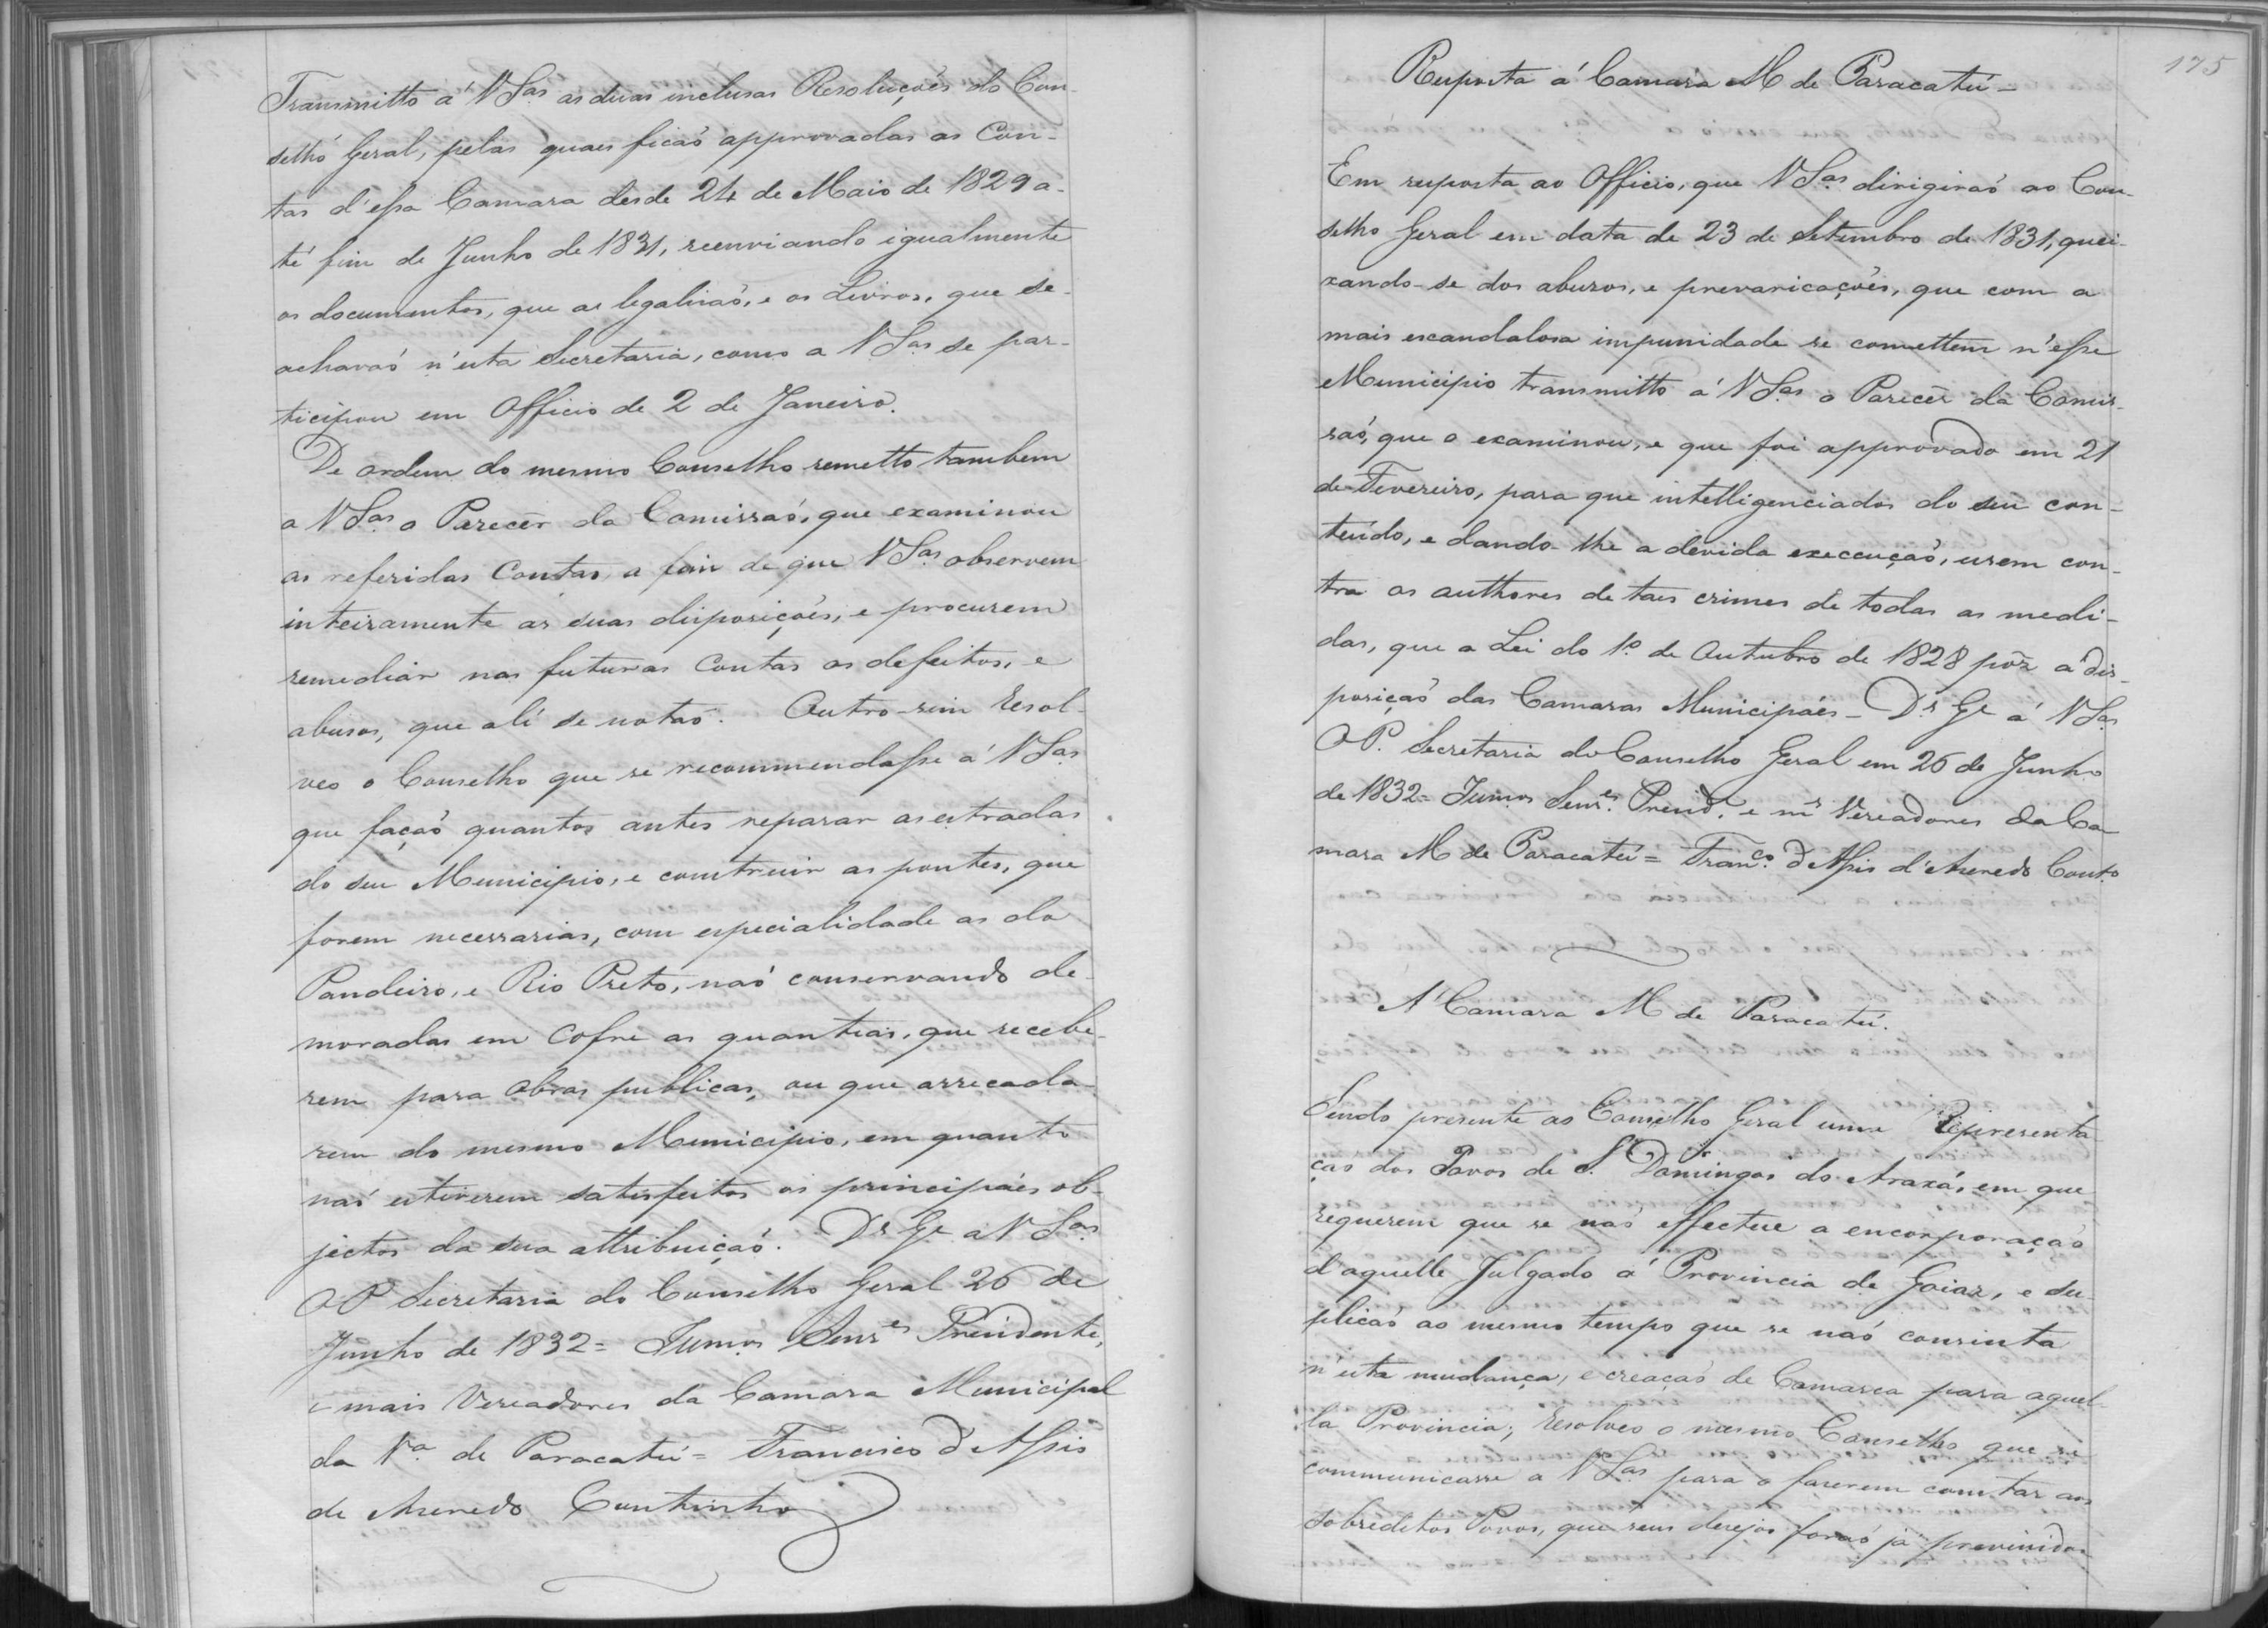 Transmitto á V Sas as duas inclusas Resoluçoẽs do Con-
selho Geral, pelas quaes ficaõ approvadas as Con-
tas d'essa Camara desde 24 de Maio de 1829 a-
té fim de Junho de 1831, reenviando igualmente
os documentos, que as legalisaõ, e os Livros, que se
achavaõ n'esta Secretaria, como a V Sas se par-
ticipou em Officio de 2 de Janeiro.
De ordem do mesmo Conselho remetto tambem
a V Sas o Parecer da Comissaõ, que examinou
as referidas Contas, a fim de que V Sas observem
inteiramente as suas disposiçoẽs, e procurem
remediar nas futuras Contas os defeitos, e
abusos, que ali se notaõ. Outro-sim Resol-
veo o Conselho que se recommendasse á V Sas
que façaõ quantos antes reparar as estradas
do seu Municipio, e construir as pontes, que
forem necessarias, com especialidade as do
Pandeiro, e Rio Preto, naõ conservando de-
moradas em Cofre as quantias, que recebe-
rem para obras publicas, ou que arrecada-
rem do mesmo Municipio, em quanto
naõ estiverem satisfeitos os principáes ob-
jectos da sua attribuiçaõ. Ds Ge a V Sas
O P Secretaria do Conselho Geral 26 de
Junho de 1832 = Illmos Senres Presidente,
e mais Vereadores da Camara Municipal
da Va de Paracatú = Francisco d'Assis
de Azeredo Coutinho
175
Resposta á Camara M de Paracatú -
Em resposta ao Officio, que V Sas dirigiraõ ao Con-
selho Geral em data de 23 de Setembro de 1831, quei-
xando-se dos abusos, e prevaricaçoẽs, que com a
mais escandalosa impunidade se comettem n'esse
Municipio transmitto á V Sas o Parecer da Comis-
saõ, que o examinou, e que foi approvado em 21
de Fevereiro, para que intelligenciados do seu con-
teúdo, e dando-lhe a devida execcuçaõ, usem con-
tra os authores de taes crimes de todas as medi-
das, que a Lei do 1º de Outubro de 1828 pôz á dis-
posiçaõ das Camaras Municipáes - Ds Ge á V Sas
O P. Secretaria do Conselho Geral em 26 de Junho
de 1832 = Illmos Senres Presid.e e ms Vereadores da Ca
mara M de Paracatú = Franco. d'Assis d'Azeredo Couto
A' Camara M de Paracatú.
Sendo presente ao Conselho Geral uma Representa
çaõ dos Povos de S. Domingos do Araxá, em que
requerem que se naõ effectue a encorporaçaõ
d'aquelle Julgado á Provincia de Goiaz, e su-
plicaõ ao mesmo tempo que se naõ consinta
n'esta mudança, e creaçaõ de Comarca para aquel-
la Provincia; Resolveo o mesmo Conselho que se
communicasse a V Sas para o fazerem constar aos
sobreditos Povos, que seus desejos foraõ já prevenidos